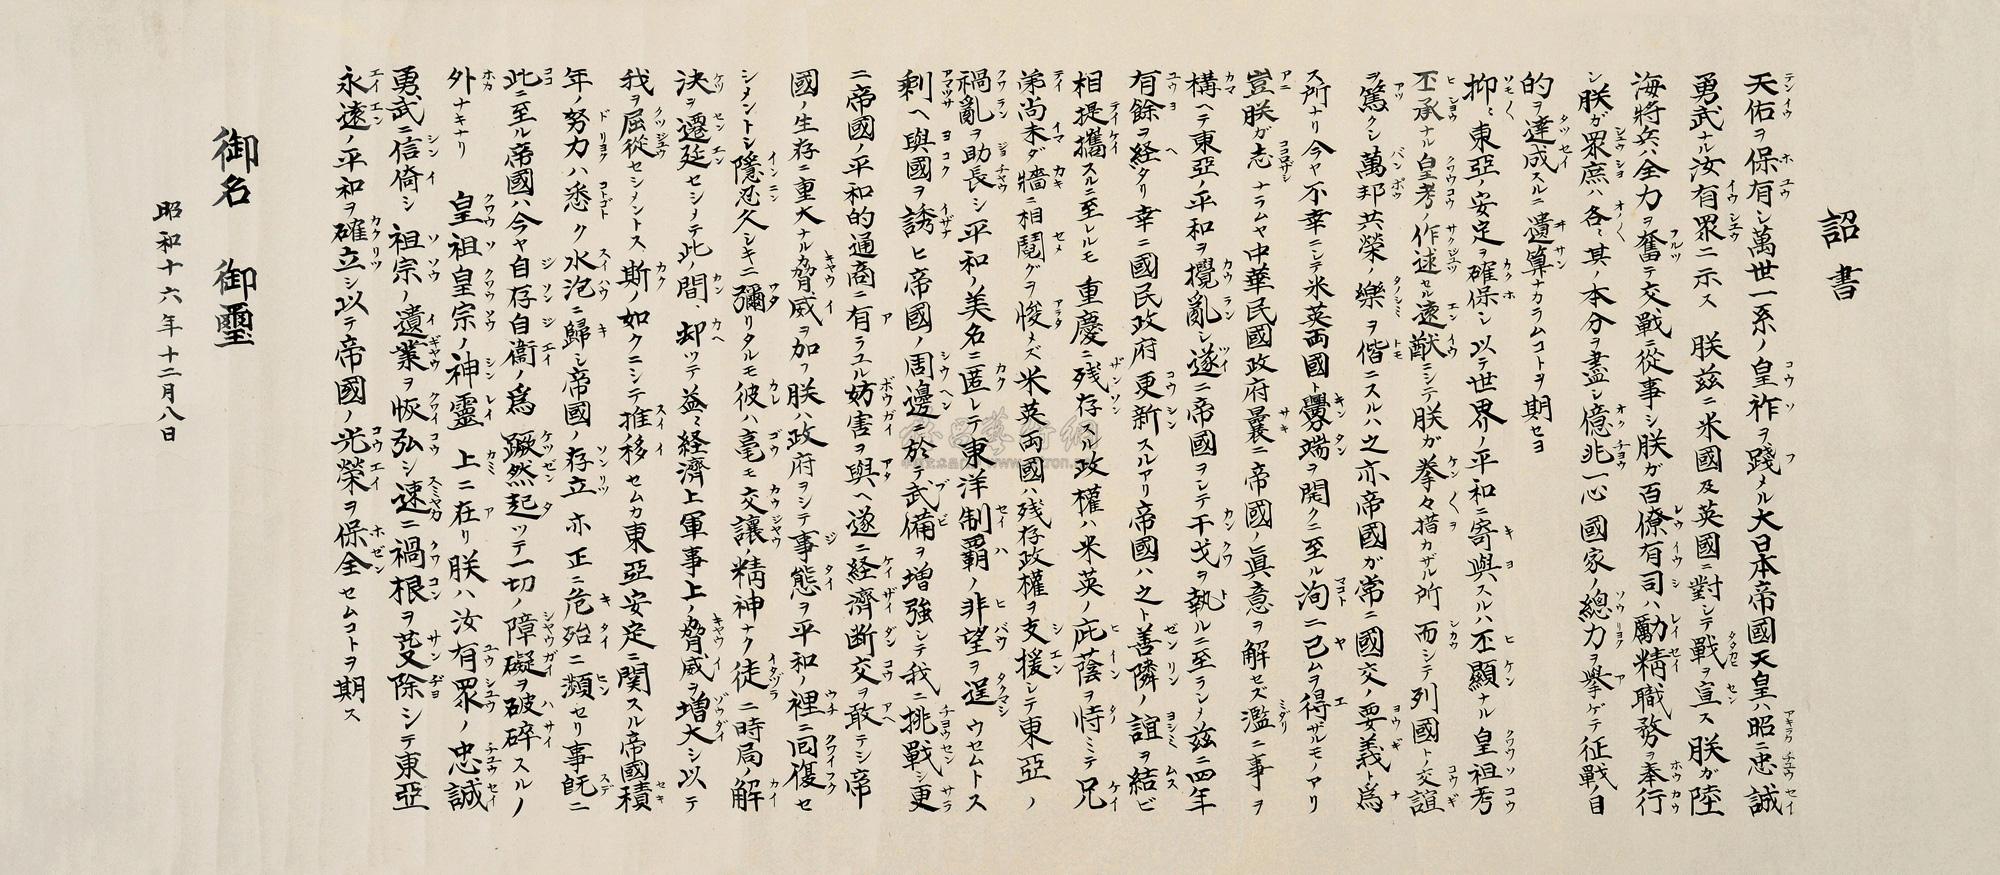 詔書
天佑ヲ保有シ萬世一系ノ皇祚ヲ踐メル大日本帝國天皇ハ昭ニ忠誠
勇武ナル汝有眾ニ示ス 朕茲ニ米國及英國ニ對シテ戰ヲ宣ス朕ガ陸
海將兵ハ全力ヲ奮テ交戰ニ從事シ朕ガ百僚有司ハ勵精職務ヲ奉行
シ朕ガ眾庶ハ各〻其ノ本分ヲ盡シ億兆一心國家ノ總力ヲ擧ゲテ征戰ノ目
的ヲ達成スルニ遺算ナカラムコトヲ期セヨ
抑〻東亞ノ安定ヲ確保シ以テ世界ノ平和ニ寄與スルハ丕顯ナル皇祖考
丕承ナル皇考ノ作述セル遠猷ニシテ朕ガ拳々措カザル所 而シテ列國トノ交誼
ヲ篤クシ萬邦共榮ノ樂ヲ偕ニスルハ之亦帝國ガ常ニ國交ノ要義ト為
ス所ナリ今ヤ不幸ニシテ米英両國ト釁端ヲ開クニ至ル洵ニ已ムヲ得ザルモノアリ
豈朕ガ志ナラムヤ中華民國政府曩ニ帝國ノ眞意ヲ解セズ濫ニ事ヲ
構ヘテ東亞ノ平和ヲ攪亂シ遂ニ帝國ヲシテ干戈ヲ執ルニ至ラシメ茲ニ四年
有餘ヲ経タリ幸ニ國民政府更新スルアリ帝國ハ之ト善隣ノ誼ヲ結ビ
相提攜スルニ至レルモ重慶ニ残存スル政權ハ米英ノ庇蔭ヲ恃ミテ兄
弟尚未ダ牆ニ相鬩グヲ悛メズ米英両國ハ残存政權ヲ支援シテ東亞ノ
禍亂ヲ助長シ平和ノ美名ニ匿レテ東洋制覇ノ非望ヲ逞ウセムトス
剰ヘ與國ヲ誘ヒ帝國ノ周邊ニ於テ武備ヲ増強シテ我ニ挑戰シ更
ニ帝國ノ平和的通商ニ有ラユル妨害ヲ與ヘ遂ニ経濟断交ヲ敢テシ帝
國ノ生存ニ重大ナル脅威ヲ加フ朕ハ政府ヲシテ事態ヲ平和ノ裡ニ囘復セ
シメントシ隱忍久シキニ彌リタルモ彼ハ毫モ交讓ノ精神ナク徒ニ時局ノ解
決ヲ遷延セシメテ此ノ間、却ツテ益〻経濟上軍事上ノ脅威ヲ増大シ以テ
我ヲ屈從セシメントス斯ノ如クニシテ推移セムカ東亞安定ニ関スル帝國積
年ノ努力ハ悉ク水泡ニ歸シ帝國ノ存立亦正ニ危殆ニ瀕セリ事既ニ
此ニ至ル帝國ハ今ヤ自存自衞ノ爲蹶然起ツテ一切ノ障礙ヲ破碎スルノ
外ナキナリ 皇祖皇宗ノ神靈上ニ在リ朕ハ汝有眾ノ忠誠
勇武ニ信倚シ祖宗ノ遺業ヲ恢弘シ速ニ禍根ヲ芟除シテ東亞
永遠ノ平和ヲ確立シ以テ帝國ノ光榮ヲ保全セムコトヲ期ス
御名 御璽
昭和十六年十二月八日